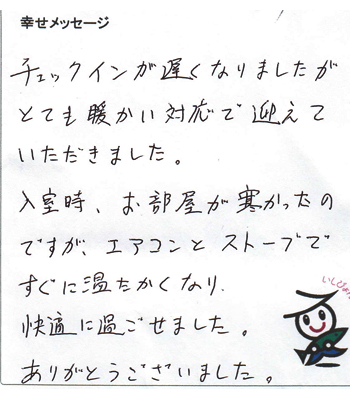 幸せメッセージ
チェックインが遅くなりましたが
とても暖かい対応で迎えて
いただきました。
入室時、お部屋が寒かったの
ですが、エアコンとストーブで
すぐに温たかくなり、
快適に過ごせました。
ありがとうございました。